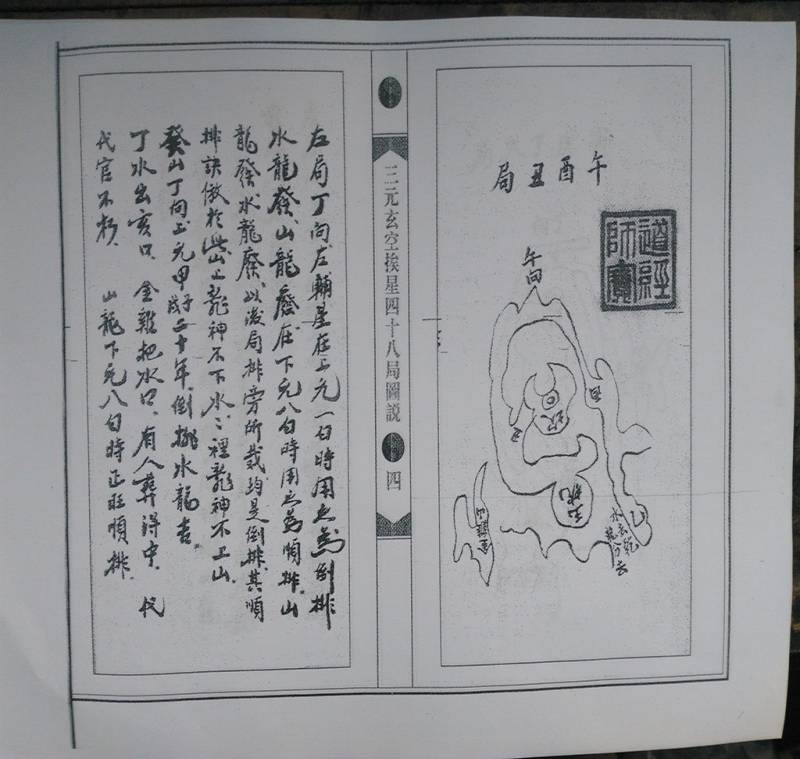 午酉丑局
道經師寶
午向
酉
丑
坎
玉乳
金雞山
水去乾
龍分去
三元玄空挨星四十八局圖説
四
左局丁向左輔星在上元一白時用之為倒排
水龍發山龍廢在下元八白時用之為順排山
龍發水龍廢以後局排旁所載均是倒排其順
排訣倣於此山上龍神不下水水裡龍神不上山
癸山丁向上元甲子戌二十年倒排水龍吉
丁水出亥口金雞把水口有人葬得中代
代官不朽山龍下元八白時正旺順排